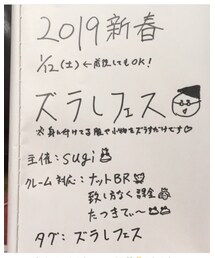 2019 新春
1/12(土)←前後してもOK!
ズラしフェス
※身に付けてる服や小物をズラすだけです♡
主催:sugi
クレーム対応:ナットBR
致し方なく課金
たつきてぃ〜
タグ:ズラしフェス